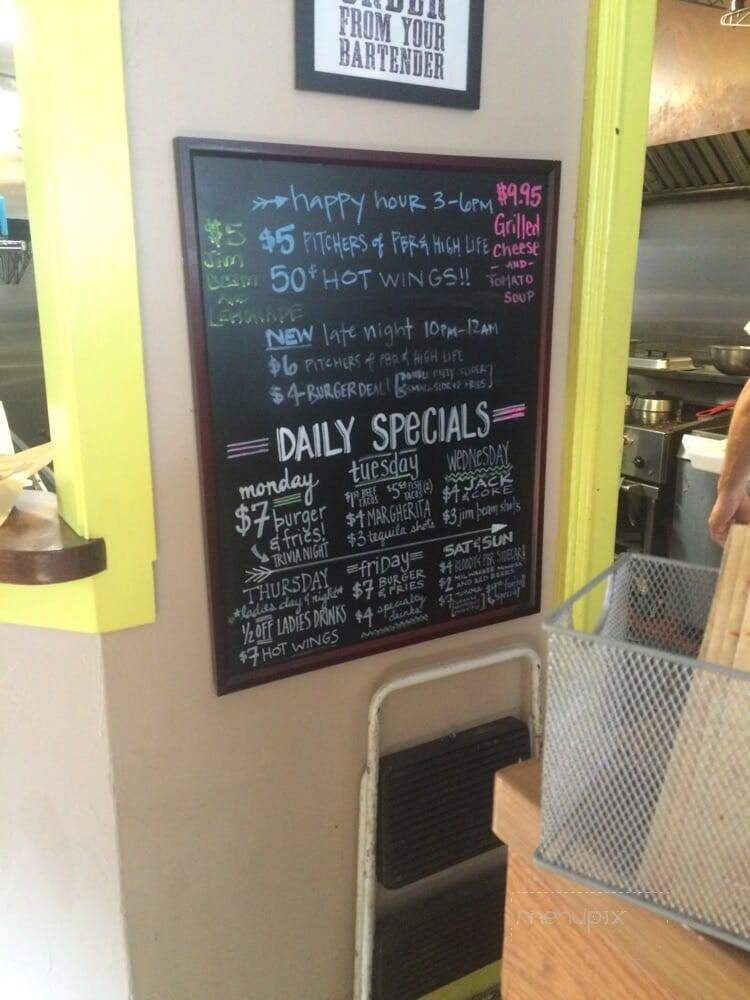 ORDER
FROM YOUR
BARTENDER
happy hour 3-6pm
$5 PITCHERS of PBR & HIGH LIFE
50¢ HOT WINGS!!
$5
Jim
Beam
LEMONADE
$9.95
Grilled
cheese
-AND-
TOMATO
SOUP
NEW late night 10PM-12AM
$6 PITCHERS of PBR & HIGH LIFE
$4 BURGER DEAL!
DAILY SPECIALS
monday
$7 burger
& fries!
TRIVIA NIGHT
tuesday
BEEF TACOS
FISH TACOS (2)
$4 MARGHERITA
$3 tequila shots
WEDNESDAY
$4 JACK & COKE
$3 jim beam shots
THURSDAY
*ladies day & night*
½ OFF LADIES DRINKS
$7 HOT WINGS
friday
$7 BURGER & FRIES
$4 specialty drinks!
SAT & SUN
$4 BLOODY & PBR SIDECAR
$2
menupix